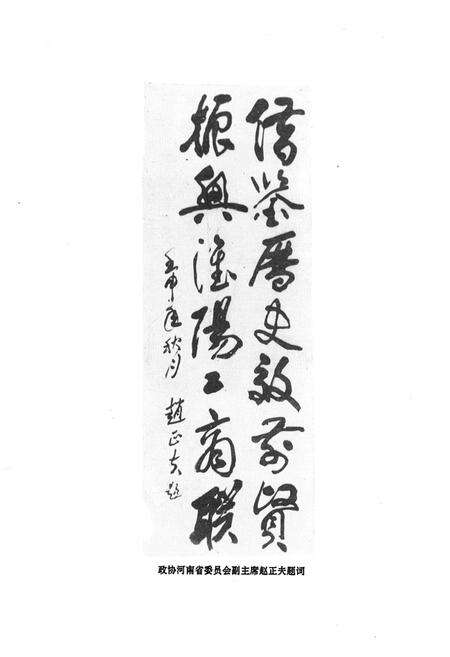 借鉴历史效前贤
振興淮陽工商联
壬申年秋月 趙正夫题
政协河南省委员会副主席赵正夫题词